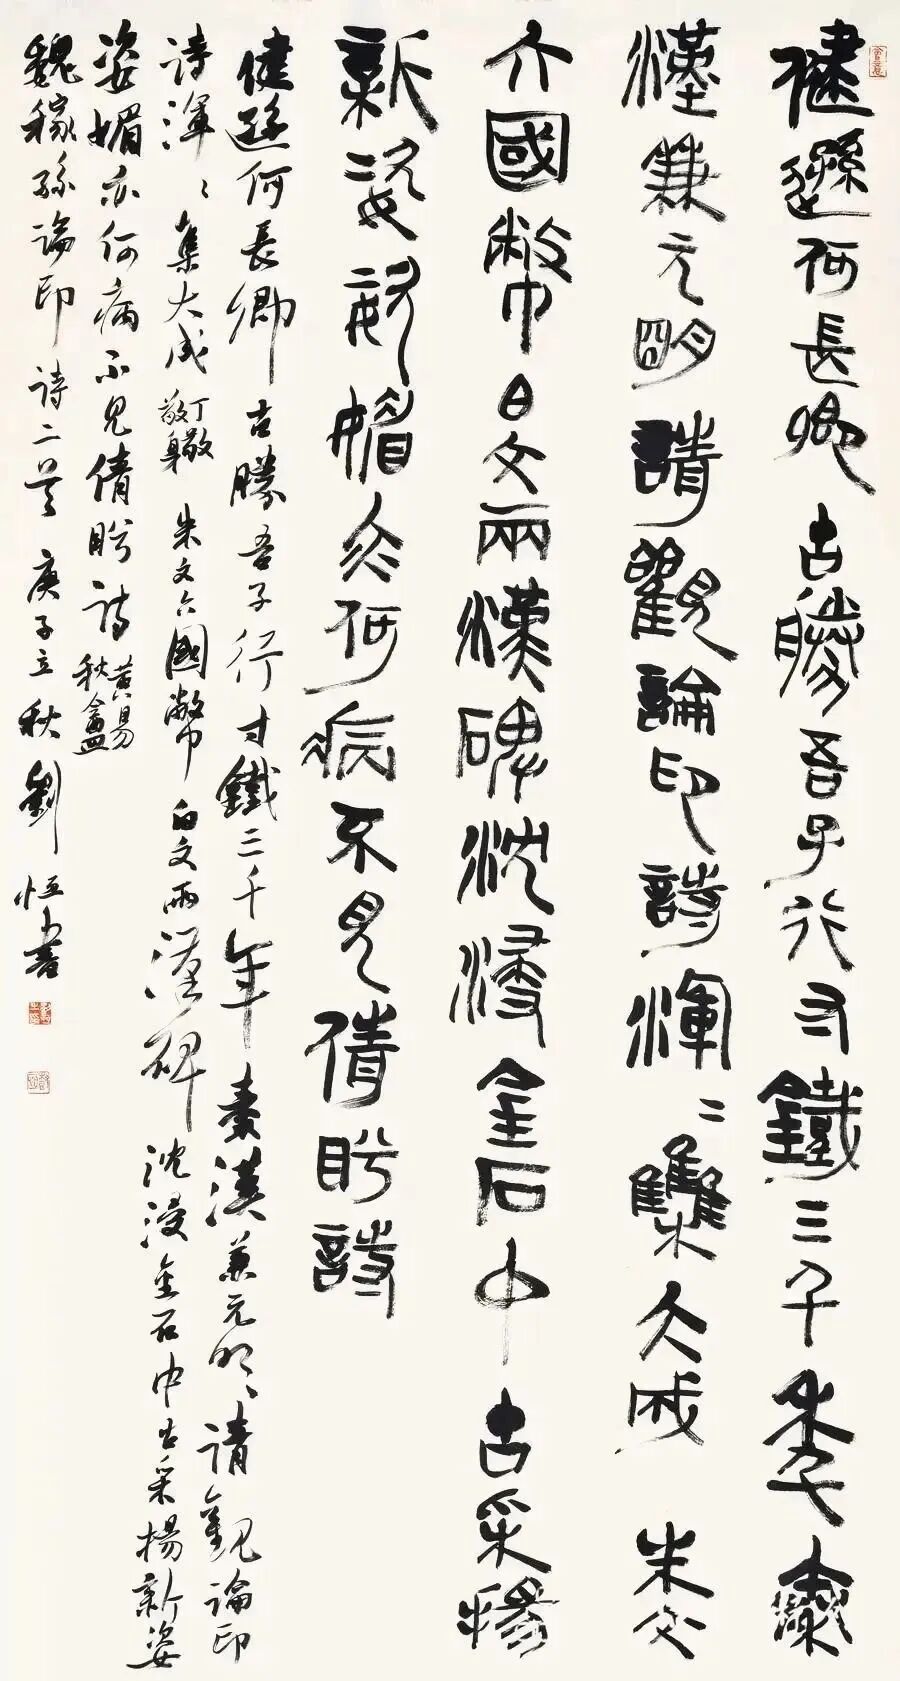 健遜何長卿 古勝吾子行 寸鐵三千年 秦
漢兼元明 請觀論印詩 渾〻集大成 朱文
六國幣 白文兩漢碑 沈浸金石中 古采揚
新姿 姿媚亦何病 不見倩盼詩
健遜何長卿 古勝吾子行 寸鐵三千年 秦漢兼元明 請觀論印
詩 渾〻集大成 丁敬敬身 朱文六國幣 白文兩漢碑 沈浸金石中 古采揚新姿
姿媚亦何病 不見倩盼詩 黃易秋盦
魏稼孫論印詩二首 庚子立秋 劉恒書